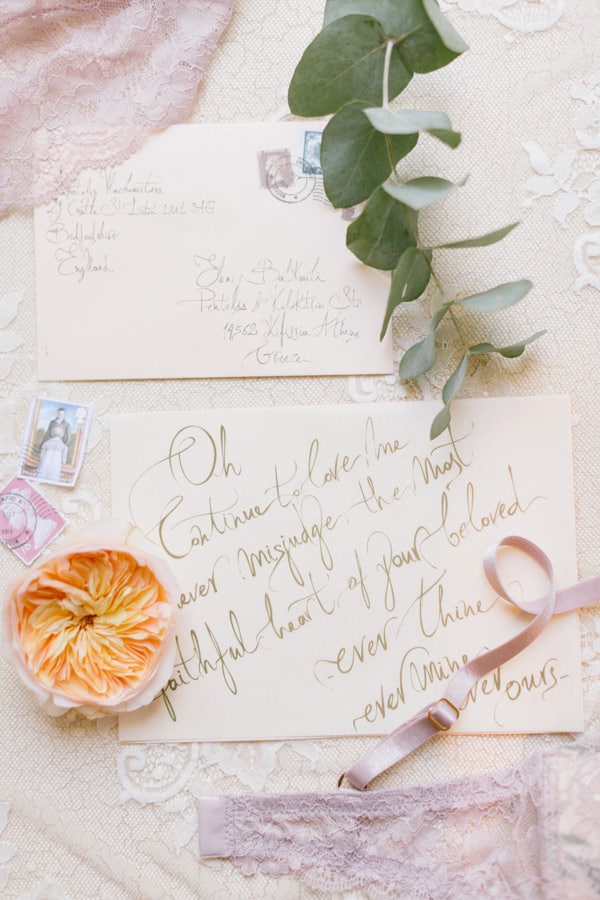 Castle St Luton LU1 3AG
Bedfordshire
England
Pentelis & Kolokotroni Str
14562 Kifissia Athens
Greece
Oh
Continue to love me
ever misjudge the most
faithful heart of your beloved
-ever thine
-ever mine
ever ours-